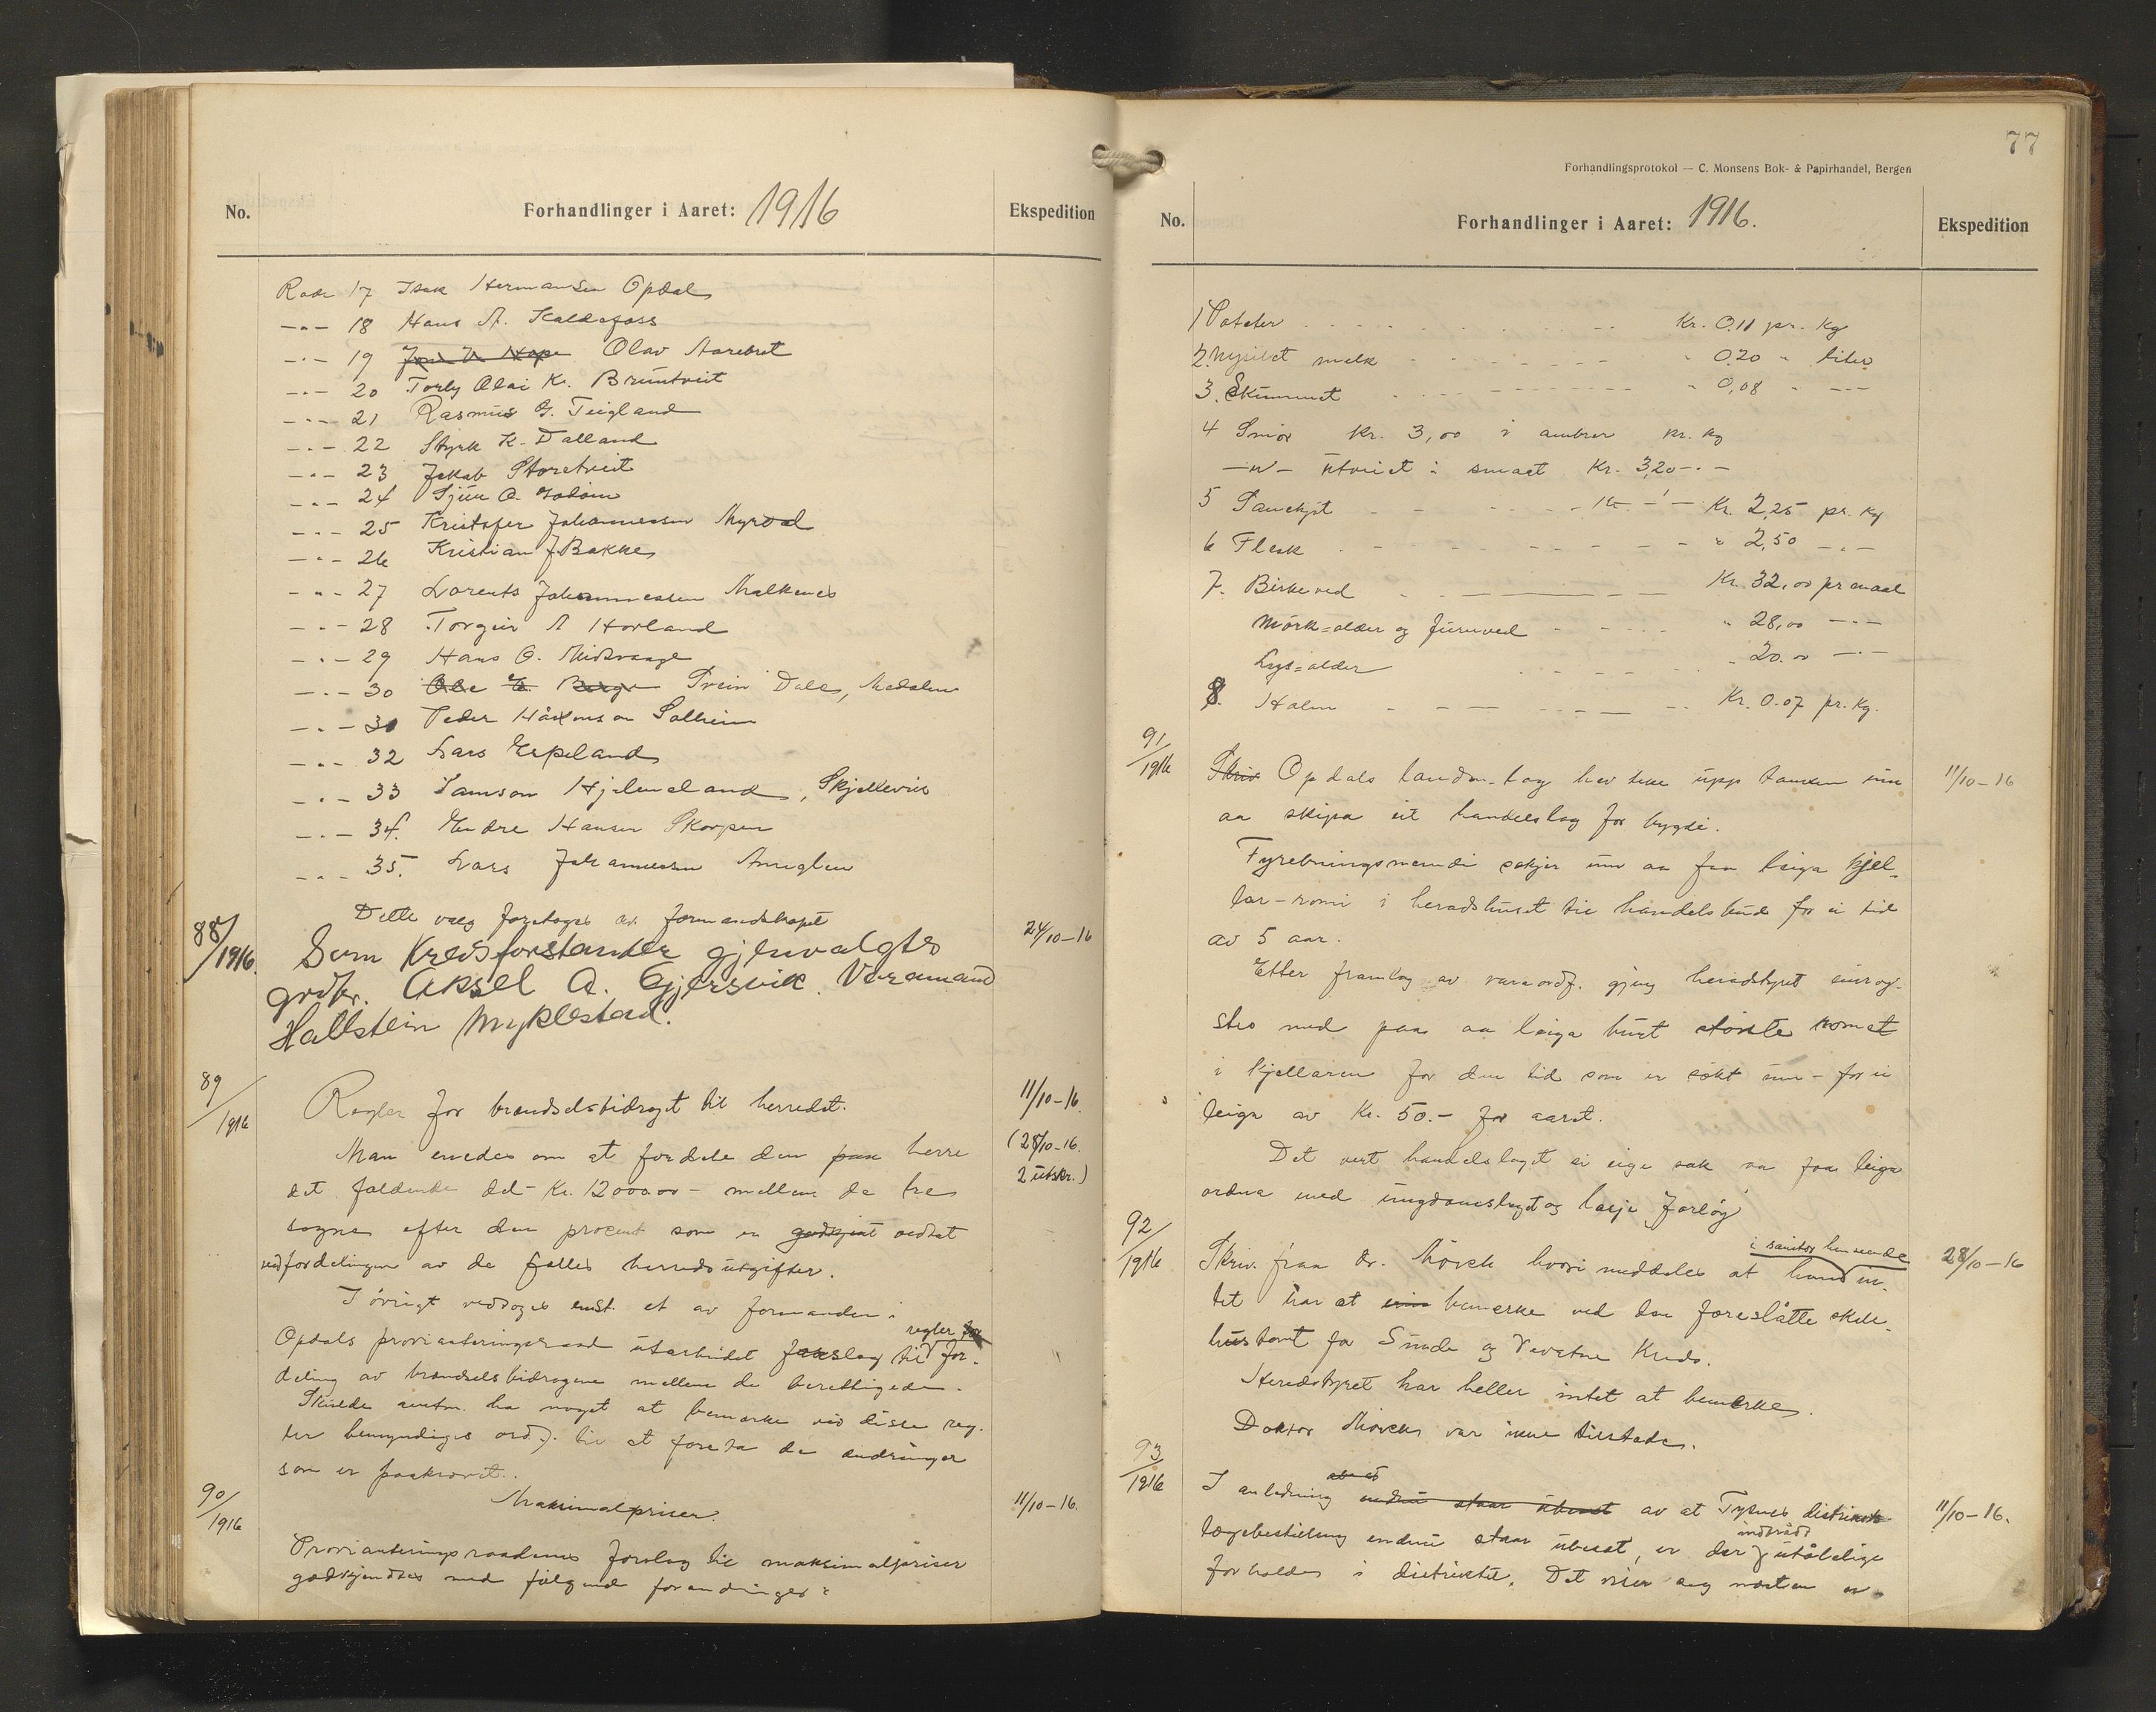 No.
Forhandlinger i Aaret: 1916
Ekspedition
Rode 17 Isak Hermansen Opdal
-"- 18 Hans A. Kaldafoss
-"- 19 Jon N. Hope Olav Aarebrot
-"- 20 Torby Olai Kr. Bruntveit
-"- 21 Rasmus G. Teigland
-"- 22 Styrk K. Dalland
-"- 23 Jakob Storetveit
-"- 24 Sjur O.
-"- 25 Kristofer Johannessen Myrdal
-"- 26 Kristian J. Bakke
-"- 27 Lorents Johannessen Malkenes
-"- 28 Torgeir A Hovland
-"- 29 Hans O. Midtvaage
-"- 30 Ole E. Berge Svein Dale,
-"- 31 Peder Håkonson Solheim
-"- 32 Lars Espeland
-"- 33 Samson Hjelmeland, Skjellevik
-"- 34. Endre Hansen Skorpen
-"- 35. Lars Johannessen
Dette valg foretages av formandskapet
88/1916. Som Kredsforstander gjenvalgtes 24/10-16
grdbr. Aksel A. Gjersvik. Varamand
Hallstein Myklestad.
89/1916 Regler for brændselsbidraget til herredet. 11/10-16.
Man enedes om at fordele den paa herre (28/10-16.
det faldende del - Kr. 12000.00 - mellem de tre 2 utskr.)
sogne efter den procent som er godkjent vedtat
ved fordelingen av de fælles herredsutgifter.
I øvrigt vedtoges enst. et av formanden i
Opdals provianteringsraad utarbeidet forslag til regler for for-
deling av brændselsbidragene mellem de berettigede.
Skulde amtm. ha noget at bemerke ved disse reg-
ler bemyndiges ordf. til at foreta de ændringer
som er paakrævet.
90/1916 Maksimalpriser. 11/10-16.
Provianteringsraadenes forslag til maksimalpriser
godkjendtes med følgende forandringer:
77
Forhandlingsprotokol — C. Monsens Bok- & Papirhandel, Bergen
No.
Forhandlinger i Aaret: 1916.
Ekspedition
1 Poteter Kr. 0.11 pr. Kg
2. Nysilet melk " 0.20 " liter
3. Skummet " 0,08 " -"-
4 Smør Kr. 3,00 i ambrer pr. kg
-"- utveiet i smaat Kr. 3,20 -"-
5 Sauekjøt Kr. 2,25 pr. Kg
6 Flesk " 2,50 -"-
7. Birkeved Kr. 32,00 pr maal
Mørk=older og furuved " 28,00 -"-
Lys=older " 20.00 -"-
8. Halm Kr. 0.07 pr. Kg.
91/1916 Skriv Opdals landm.-lag hev teke upp tanken um 11/10-16
aa skipa eit handelslag for bygdi.
Fyrebuingsnemndi søkjer um aa faa leiga kjel-
lar-romi i heradshuset til handelsbud for ei tid
av 5 aar.
Etter framlag av varaordf. gjeng heradstyret einrøy-
stes med paa aa leiga burt største romet
i kjellaren for den tid som er søkt um - for ei
leiga av Kr. 50.- for aaret.
Det vert handelslaget si eiga sak aa faa leiga
ordna med ungdomslaget og leije forløg
92/1916 Skriv fraa dr. Mörch hvori meddeles at han i sanitær henseende in- 28/10-16
tet har at bemerke ved den foreslåtte skole-
hustomt for Sunde og Vevatne Kreds.
Heredstyret har heller intet at bemerke.
Doktor Mörch var ikke tilstede.
93/1916 I anledning endnu staar ubesat av at Tysnes distrikts- 11/10-16.
lægebestilling endnu staar ubesat, er der indtrådt utålelige
forholde i distriktet. Det viser seg næsten u-